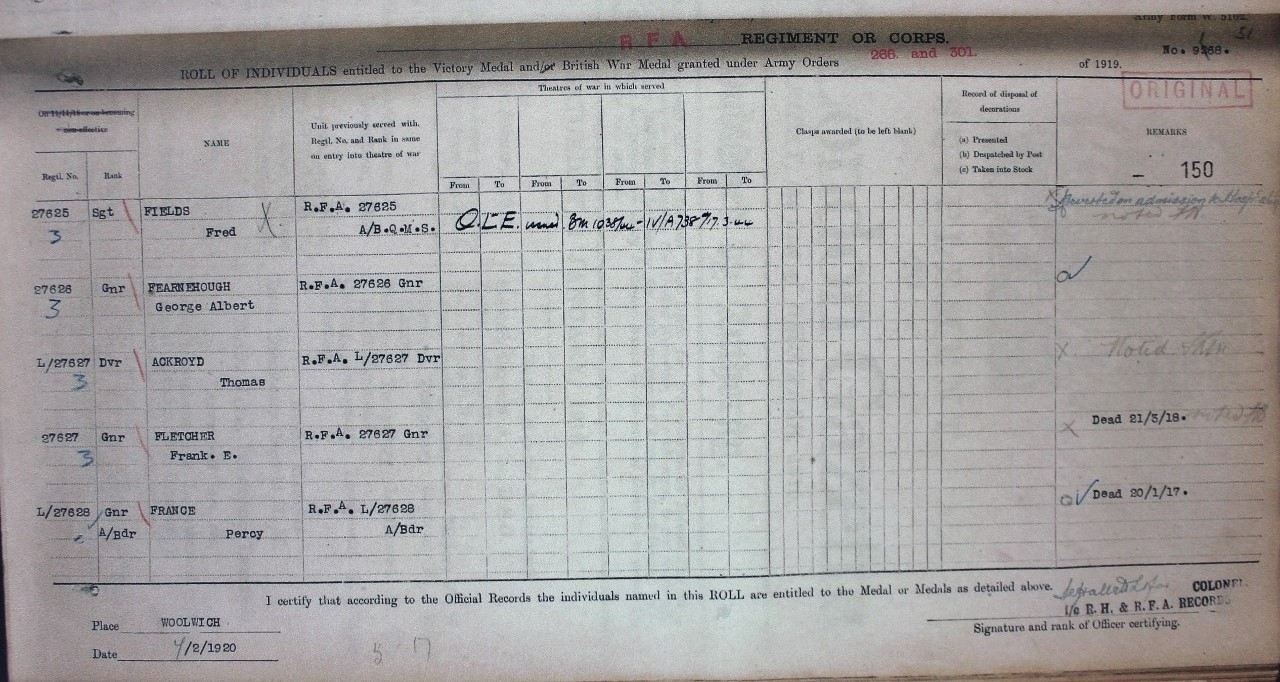 Army Form W. 5102.
R F A REGIMENT OR CORPS. 51
266. and 301. No. 9268.
ROLL OF INDIVIDUALS entitled to the Victory Medal and/or British War Medal granted under Army Orders of 1919.
ORIGINAL
On 11/11/18 or on becoming non-effective
Regtl. No. Rank
NAME
Unit previously served with.
Regtl. No. and Rank in same
on entry into theatre of war
Theatres of war in which served
From To From To From To From To
Clasps awarded (to be left blank)
Record of disposal of
decorations
(a) Presented
(b) Despatched by Post
(c) Taken into Stock
REMARKS
150
27625 Sgt FIELDS R.F.A. 27625
3 Fred A/B.Q.M.S.
admission to
noted
27626 Gnr FEARNEHOUGH R.F.A. 27626 Gnr
3 George Albert
L/27627 Dvr ACKROYD R.F.A. L/27627 Dvr Noted
3 Thomas
Dead 21/3/18. noted
27627 Gnr FLETCHER R.F.A. 27627 Gnr
3 Frank. E.
Dead 20/1/17.
L/27628 Gnr FRANCE R.F.A. L/27628
A/Bdr Percy A/Bdr
I certify that according to the Official Records the individuals named in this ROLL are entitled to the Medal or Medals as detailed above.
COLONEL
i/c R. H. & R. F. A. RECORDS
Signature and rank of Officer certifying.
Place WOOLWICH
Date 4/2/1920